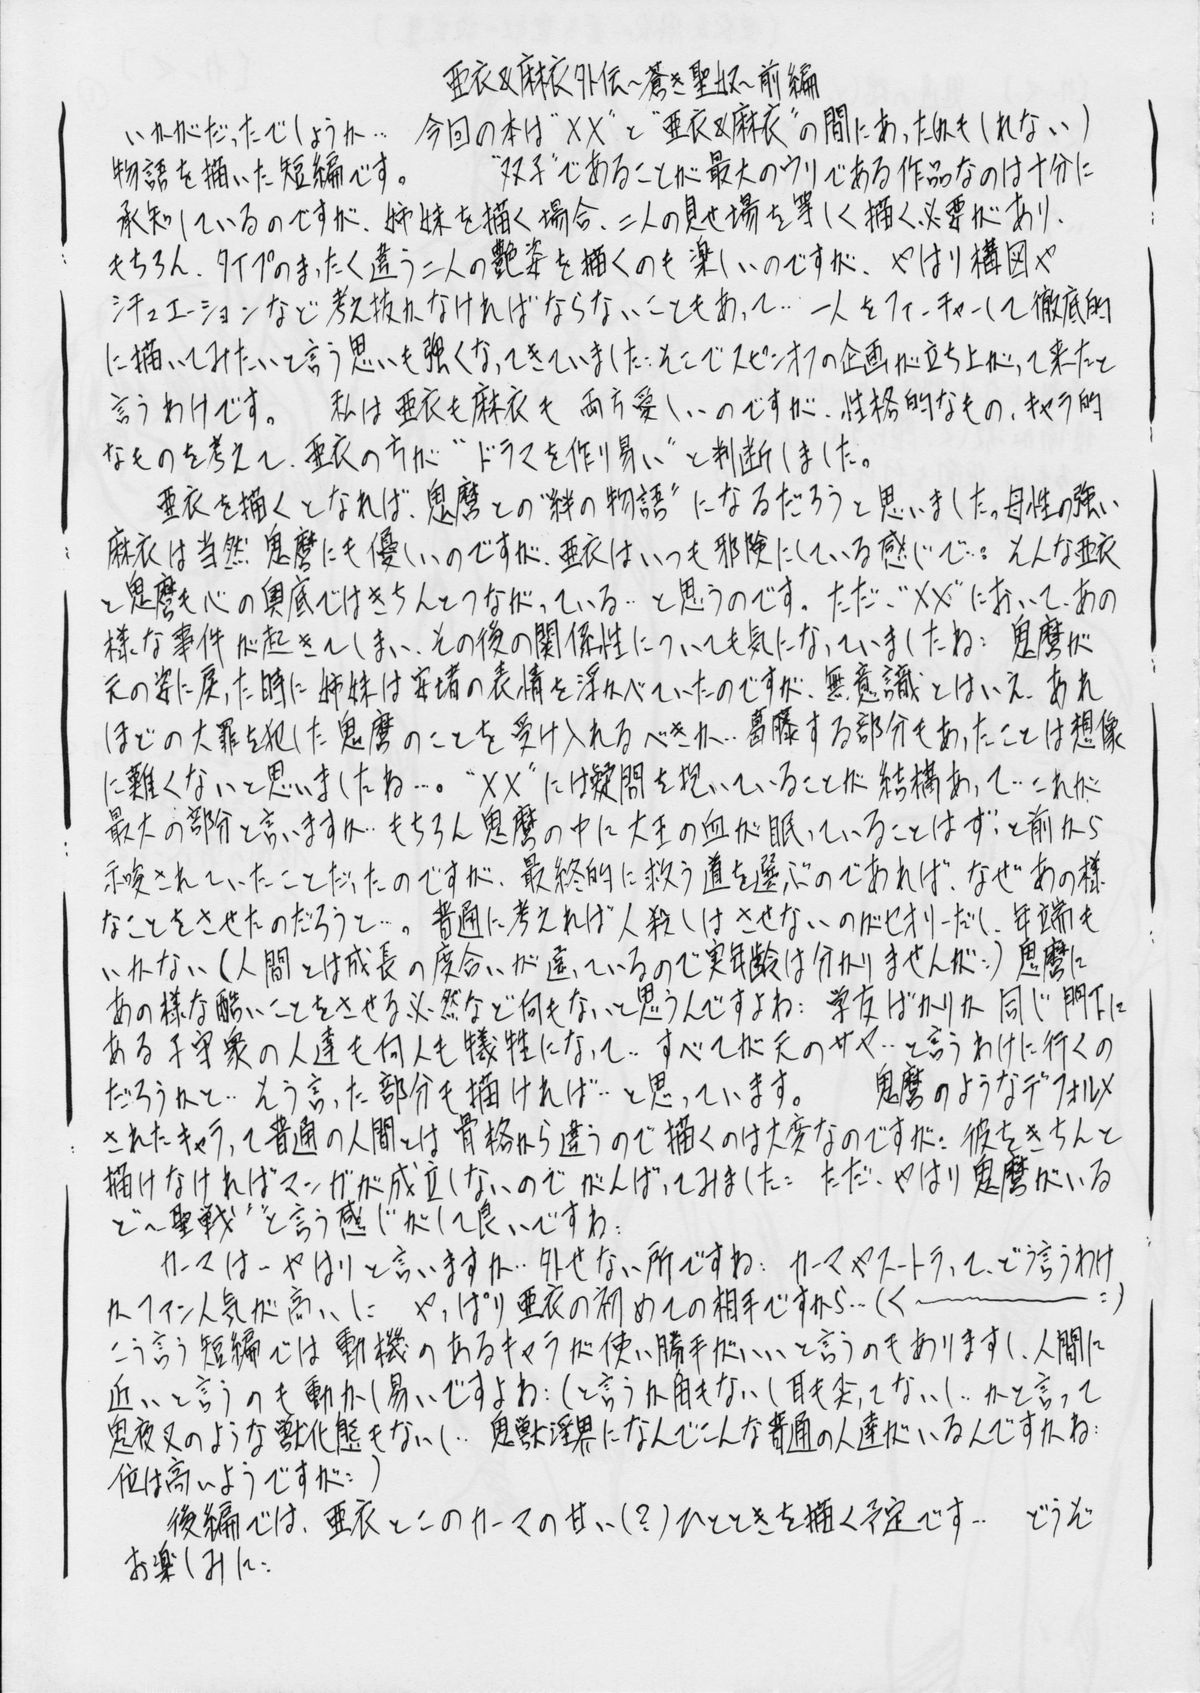 亜衣&麻衣外伝～蒼き聖奴～前編
いかがだったでしょうか… 今回の本は"XX"と"亜衣&麻衣"の間にあった(かもしれない)
物語を描いた短編です。 "双子"であることが最大のウリである作品なのは十分に
承知しているのですが、姉妹を描く場合、二人の見せ場を等しく描く必要があり、
もちろん、タイプのまったく違う二人の艶姿を描くのも楽しいのですが、やはり構図や
シチュエーションなど考え抜かなければならないこともあって… 一人をフィーチャーして徹底的
に描いてみたいと言う思いも強くなってきていました…そこでスピンオフの企画が立ち上がって来たと
言うわけです。 私は亜衣も麻衣も両方愛しいのですが、性格的なもの、キャラ的
なものを考えて、亜衣の方が"ドラマを作り易い"と判断しました。
亜衣を描くとなれば、鬼麿との"絆の物語"になるだろうと思いました。母性の強い
麻衣は当然鬼麿にも優しいのですが、亜衣はいつも邪険にしている感じで…そんな亜衣
と鬼麿も心の奥底ではきちんとつながっている…と思うのです。ただ、"XX"において、あの
様な事件が起きてしまい、その後の関係性についても気になっていましたね…鬼麿が
元の姿に戻った時に姉妹は安堵の表情を浮かべていたのですが、無意識とはいえ、あれ
ほどの大罪を犯した鬼麿のことを受け入れるべきか…葛藤する部分もあったことは想像
に難くないと思いましたね…。"XX"には疑問を抱いていることが結構あって…これが
最大の部分と言いますか…もちろん鬼麿の中に大王の血が眠っていることはずっと前から
示唆されていたことだったのですが、最終的に救う道を選ぶのであれば、なぜあの様
なことをさせたのだろうと…。普通に考えれば人殺しはさせないのがセオリーだし、年端も
いかない(人間とは成長の度合いが違っているので実年齢は分かりませんが…)鬼麿に
あの様な酷いことをさせる必然など何もないと思うんですよね…学友ばかりか同じ門下に
ある子守衆の人達も何人も犠牲になって…すべてが元のサヤ…と言うわけに行くの
だろうかと…そう言った部分も描ければ…と思っています。 鬼麿のようなデフォルメ
されたキャラって普通の人間とは骨格から違うので描くのは大変なのですが…彼をきちんと
描けなければマンガが成立しないのでがんばってみました… ただ、やはり鬼麿がいる
ど"～聖戦"と言う感じがして良いですね…
カーマは～やはりと言いますか…外せない所ですね… カーマやスートラって、どう言うわけ
かファン人気が高いし やっぱり亜衣の初めての相手ですから…(く～…)
こう言う短編では動機のあるキャラが使い勝手がいいと言うのもありますし、人間に
近いと言うのも動かし易いですよね…(と言うか角もないし耳も尖ってないし…かと言って
鬼夜叉のような獣化態もないし… 鬼獣淫界になんでこんな普通の人達がいるんですかね…
位は高いようですが…)
後編では、亜衣とこのカーマの甘い(?)ひとときを描く予定です… どうぞ
お楽しみに…